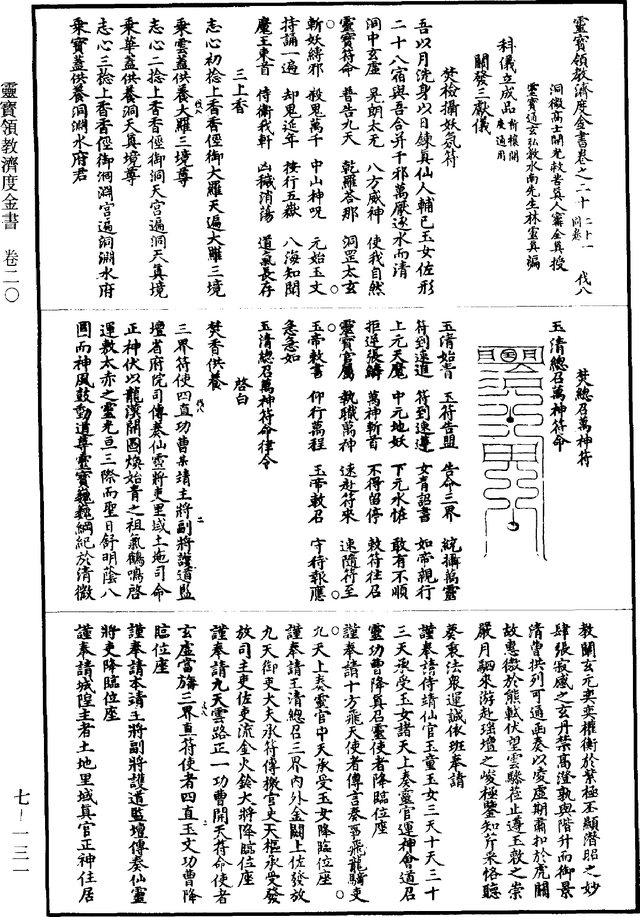 靈寶領教濟度金書卷之二十 二十一同卷 伐八
洞微高士開光救苦真人甯全真授
靈寶通玄弘教水南先生林靈真編
科儀立成品 祈禳開度通用
關發三獻儀
焚檢攝妖氛符
吾以月洗身以日鍊真仙人輔已玉女佐形
二十八宿與吾合并千邪萬厭逐水而清
洞中玄虛 晃朗太元 八方威神 使我自然
靈寶符命 普告九天 乾羅荅那 洞罡太玄
斬妖縛邪 殺鬼萬千 中山神呪 元始玉文
持誦一遍 却鬼延年 按行五嶽 八海知聞
魔王束首 侍衛我軒 凶穢消蕩 道炁長存
三上香
志心初捻上香香徑御大羅天遍大羅三境
乘雲蓋供養大羅三境尊
志心二捻上香香徑御洞天宮遍洞天真境
乘華蓋供養洞天真境尊
志心三捻上香香徑御洞淵宮遍洞淵水府
乘寶蓋供養洞淵水府君
焚總召萬神符
玉清總召萬神符命
玉清始青 玉符告盟 告命三界 統攝萬靈
符到速遣 符到速遵 女青詔書 如帝親行
上元天魔 中元地妖 下元水怪 敢有不順
拒逆張鱗 萬神斬首 不得留停 敕符往召
靈寶官屬 執職萬神 速赴符來 速隨符至
玉帝敕書 仰行萬程 玉帝敕召 守待報應
急急如
玉清總召萬神符命律令
啓白
焚香供養
三界符使四直功曹某靖主將副將護道監
壇省府院司傳奏仙靈將吏里域土地司命
正神伏以龍漢開圖煥始青之祖氣鶴鳴啓
運敷太赤之靈光亘三際而聖日舒明蔭八
圍而神風鼓動道尊靈寶巍巍綱紀於清微
教闡玄元奕奕權衡於紫極丕顯潛昭之妙
肆張寂感之玄丹禁高澄孰與階升而御景
清曹拱列可通函奏以凌虛期肅扣於虎關
故專徼於熊軾伏望雲驂莅止遵玉敕之崇
嚴月駟來游赴瑤壇之峻極鑒知芹采恪聽
葵衷法衆運誠依班奉請
謹奉請侍靖仙官玉童玉女三天十天三十
三天承受玉女諸天上奏靈官運神會道召
靈功曹降真召靈使者降臨位座
謹奉請十方飛天使者傳言奏事飛龍騎吏
九天上奏靈官中天承受玉女降臨位座
謹奉請玉清總召三界內外金闕上佐發放
九天御吏大夫承符傳檄官吏天樞承受發
放司主吏佐吏流金火鈴大將降臨位座
謹奉請九天雲路正一功曹開天符命使者
玄虛當旛三界直符使者四直玉文功曹降
臨位座
謹奉請本靖主將副將護道監壇傳奏仙靈
將吏降臨位座
謹奉請城隍主者土地里域真官正神住居
靈寶領教濟度金書 卷二〇
七—一三一